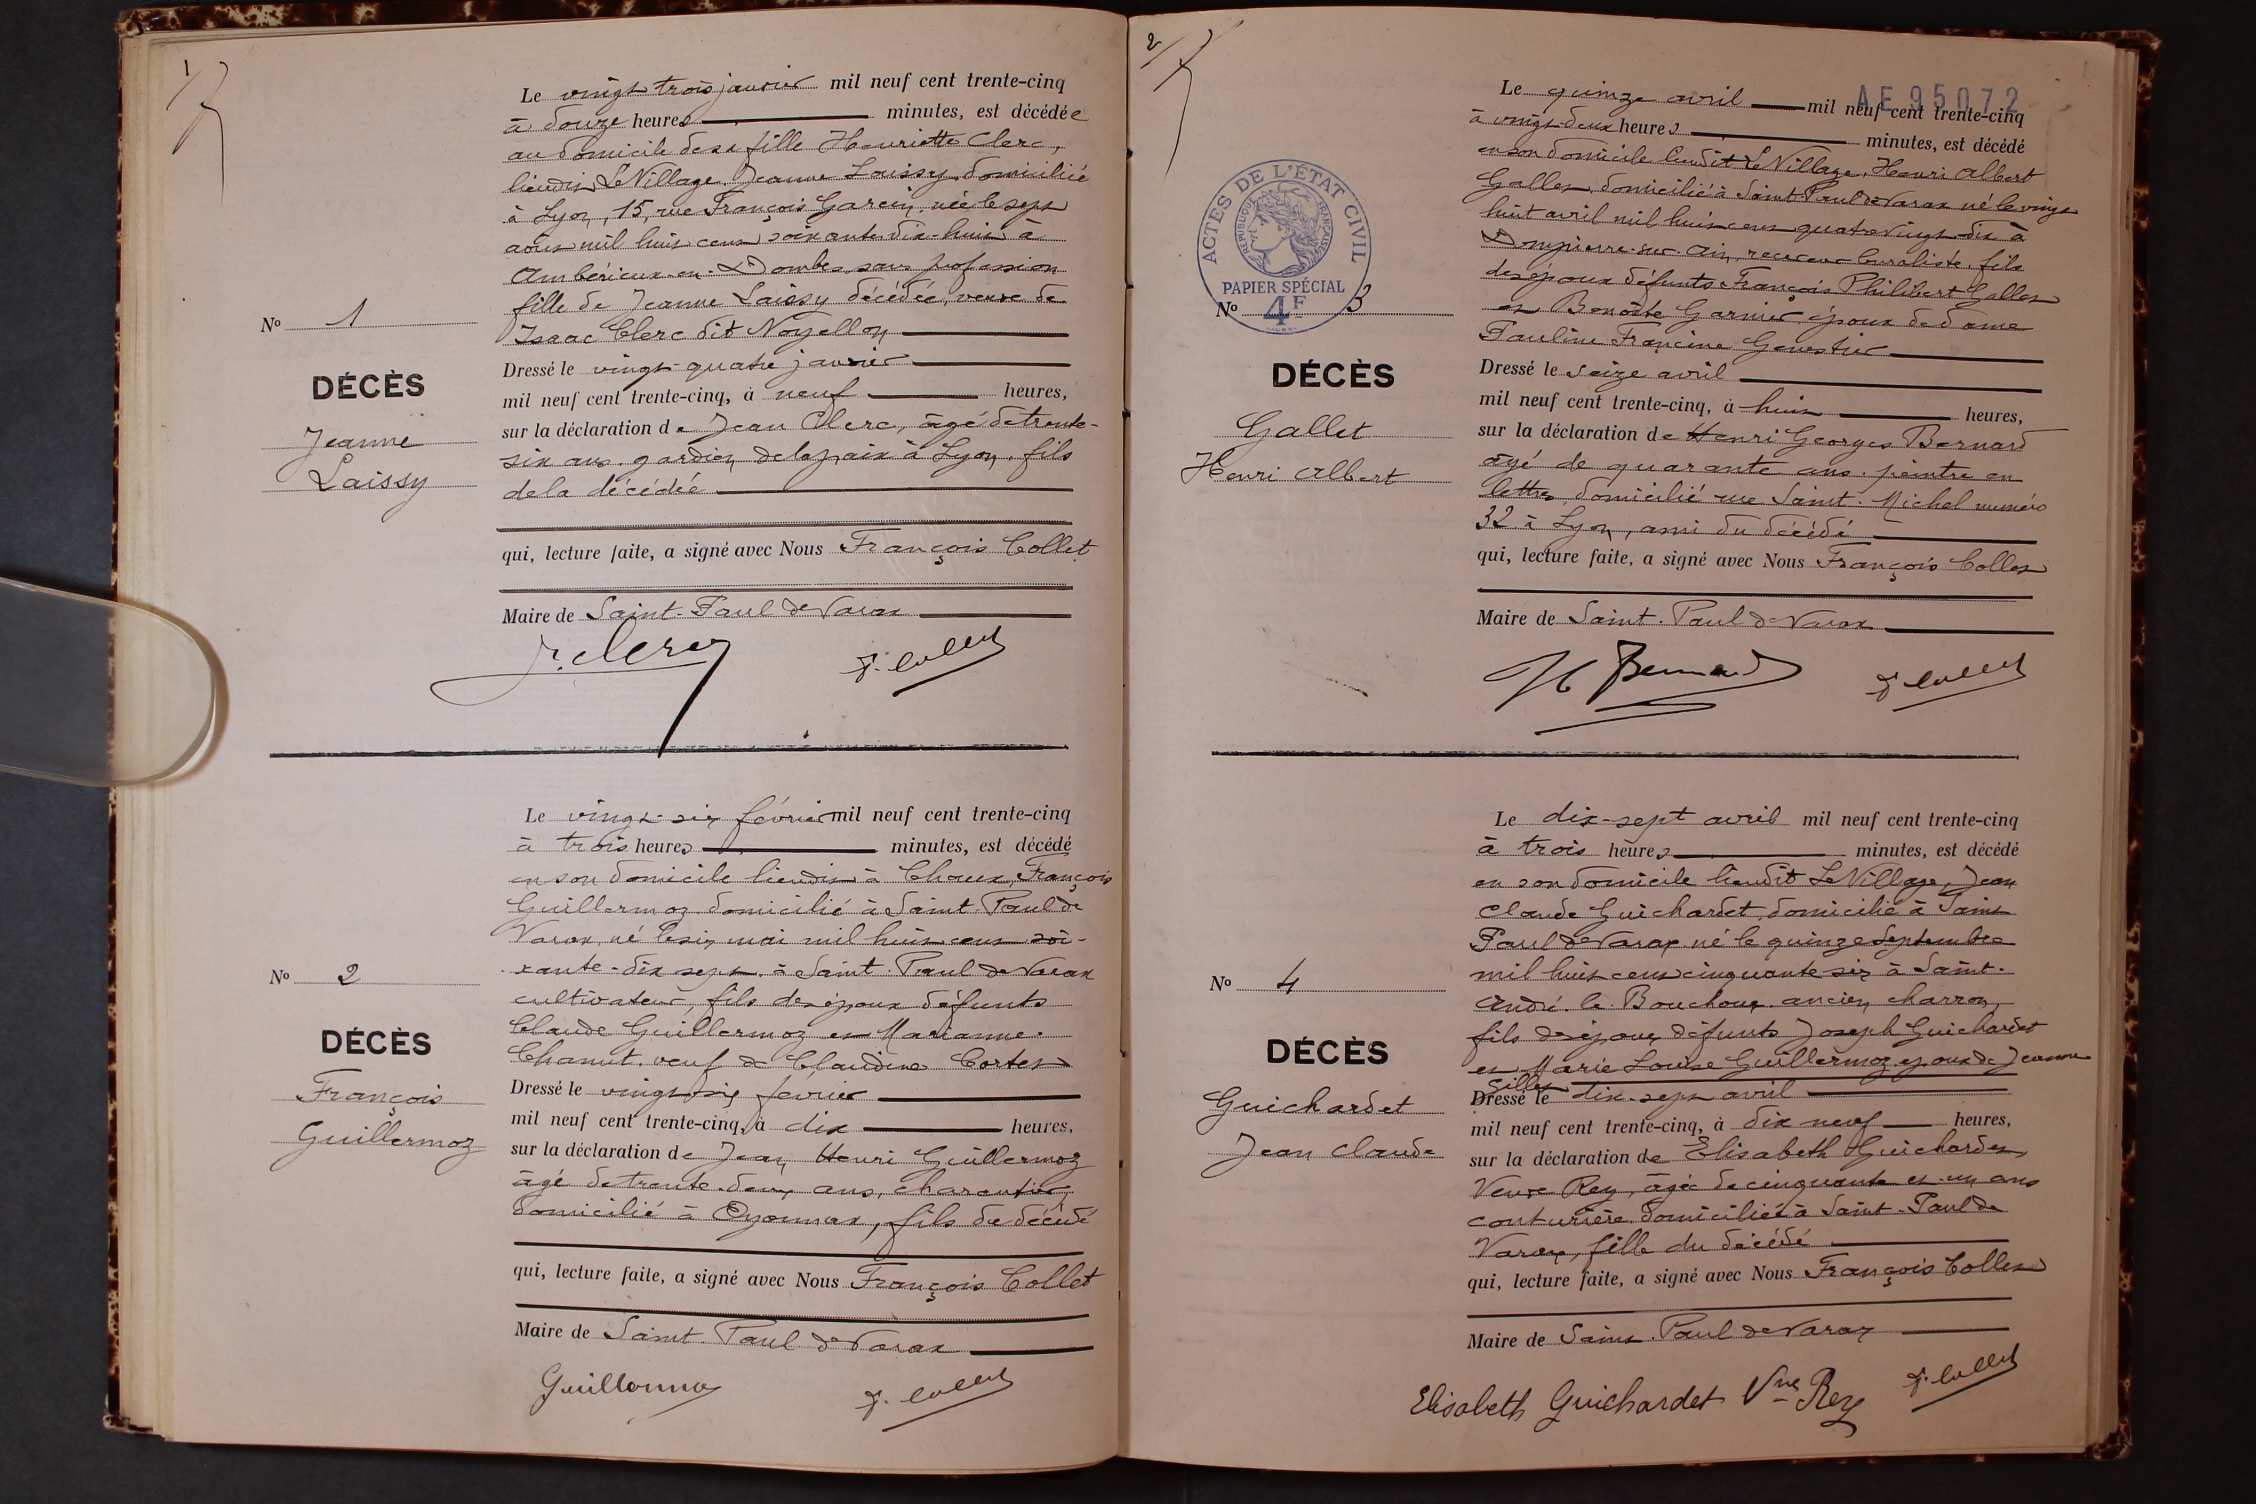 1
Le vingt trois janvier mil neuf cent trente-cinq
à douze heures minutes, est décédée
au domicile de sa fille Henriette Clerc,
lieudit Le Village, Jeanne Laissy, domiciliée
à Lyon, 15, rue François Garcin, née le sept
août mil huit cent soixante dix-huit à
Ambérieux-en-Dombes, sans profession
fille de Jeanne Laissy décédée, veuve de
Isaac Clerc dit Noyellon
Dressé le vingt-quatre janvier
mil neuf cent trente-cinq, à neuf heures,
sur la déclaration de Jean Clerc, âgé de trente-
six ans, gardien de la paix à Lyon, fils
de la décédée
qui, lecture faite, a signé avec Nous François Collet
Maire de Saint-Paul de Varax
J. Clerc F. Collet
No 1
DÉCÈS
Jeanne
Laissy
Le vingt-six février mil neuf cent trente-cinq
à trois heures minutes, est décédé
en son domicile lieudit à Choux, François
Guillermoz domicilié à Saint-Paul de
Varax, né le six mai mil huit cent soi-
xante-dix sept, à Saint-Paul de Varax
cultivateur, fils des époux défunts
Claude Guillermoz et Marianne
Chanut, veuf de Claudine Cortet
Dressé le vingt-six février
mil neuf cent trente-cinq, à dix heures,
sur la déclaration de Jean Henri Guillermoz
âgé de trente-deux ans, charentier,
domicilié à Oyonnax, fils du décédé
qui, lecture faite, a signé avec Nous François Collet
Maire de Saint-Paul de Varax
Guillermoz F. Collet
No 2
DÉCÈS
François
Guillermoz
2
AE 95072
Le quinze avril mil neuf cent trente-cinq
à vingt-deux heures minutes, est décédé
en son domicile lieudit Le Village, Henri Albert
Gallet, domicilié à Saint-Paul de Varax né le vingt
huit avril mil huit cent quatre vingt-dix à
Dompierre-sur-Ain, receveur buraliste, fils
des époux défunts François Philibert Gallet
et Benoîte Garnier époux de dame
Pauline Francine Genestier
Dressé le seize avril
mil neuf cent trente-cinq, à huit heures,
sur la déclaration de Henri Georges Bernard
âgé de quarante ans, peintre en
lettres, domicilié rue Saint-Michel numéro
32 à Lyon, ami du décédé
qui, lecture faite, a signé avec Nous François Collet
Maire de Saint-Paul de Varax
H Bernard F. Collet
ACTES DE L'ÉTAT CIVIL
RÉPUBLIQUE FRANÇAISE
PAPIER SPÉCIAL
4F
No 3
DÉCÈS
Gallet
Henri Albert
Le dix-sept avril mil neuf cent trente-cinq
à trois heures minutes, est décédé
en son domicile lieudit Le Village, Jean
Claude Guichardet, domicilié à Saint
Paul de Varax né le quinze septembre
mil huit cent cinquante six à Saint-
André-le-Bouchoux, ancien charron,
fils des époux défunts Joseph Guichardet
et Marie Louise Guillermoz époux de Jeanne
Gillet
Dressé le dix-sept avril
mil neuf cent trente-cinq, à dix neuf heures,
sur la déclaration de Elisabeth Guichardet,
Veuve Rey, âgée de cinquante et un ans
couturière, domiciliée à Saint-Paul de
Varax, fille du décédé
qui, lecture faite, a signé avec Nous François Collet
Maire de Saint-Paul de Varax
Elisabeth Guichardet Vve Rey F. Collet
No 4
DÉCÈS
Guichardet
Jean Claude